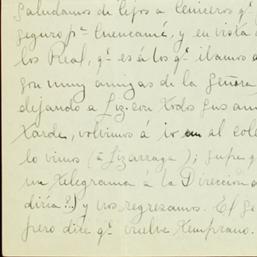 saludamos de lejos a Ceniceros qe
seguro pa Cuencamé, y en vista d
los Real, qe es á los qe íbamos a
son muy amigas de la Señora
dejando a Liz. con todos sus am
tarde, volvimos á ir al cole
lo vimos (á Lizarraga); supe q
un telegrama á la Dirección d
diría?) y nos regresamos. El Ge
pero dice qe vuelve temprano.